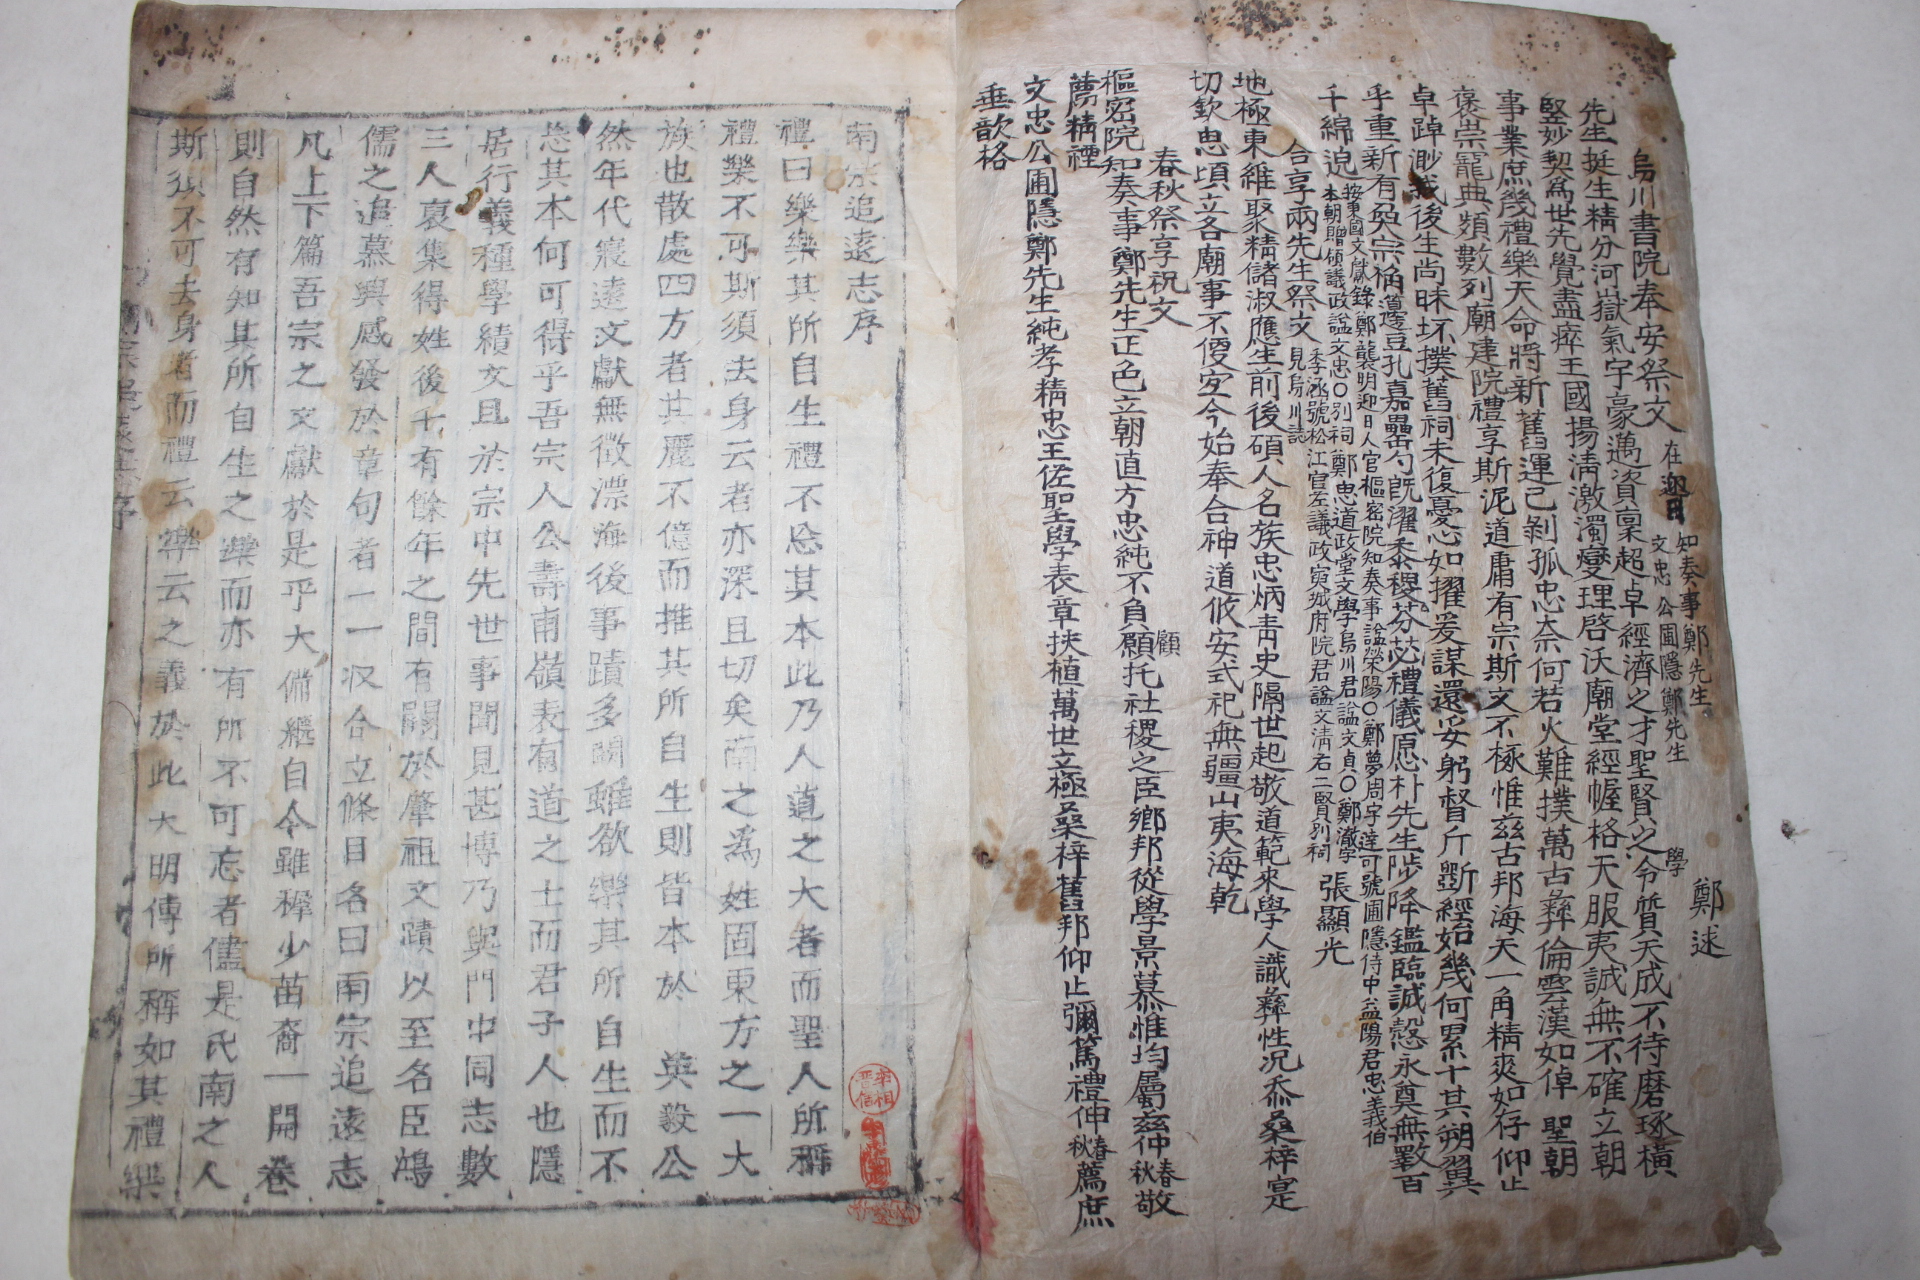 烏川書院奉安祭文 在迎日 知奏事鄭先生 文忠公圃隱鄭先生 鄭逑
先生挺生精分河嶽氣宇豪邁資稟超卓經濟之才聖賢之學令質天成不待磨琢橫
竪妙契爲世先覺盡瘁王國揚淸激濁燮理啓沃廟堂經幄格天服夷誠無不確立朝
事業庶幾禮樂天命將新舊運已剝孤忠奈何若火難撲萬古彝倫雲漢如倬 聖朝
褒崇寵典頻數列廟建院禮享斯泥道庸有宗斯文不椓惟玆古邦海天一角精爽如存仰止
卓踔渺我後生尚昧坏撲舊祠未復憂心如擢爰謀還妥躬督斤斲經始幾何累十其朔翼
乎重新有奐宗桷籩豆孔嘉罍勺旣濯黍稷芬苾禮儀愿朴先生陟降鑑臨誠慤永奠無斁百
千綿邈 按東國文獻錄鄭襲明迎日人官樞密院知奏事諡榮陽○鄭夢周字達可號圃隱侍中益陽君忠義伯
本朝贈領議政諡文忠○別祠鄭思道政堂文學烏川君諡文貞○鄭澈字
季涵號松江官左議政寅城府院君諡文淸右二賢別祠
合享兩先生祭文 見烏川誌 張顯光
地極東維聚精儲淑應生前後碩人名族忠炳靑史隔世起敬道範來學人識彝性況忝桑梓寔
切欽思頃立各廟事不傁安今始奉合神道攸安式祀無疆山夷海乾
春秋祭享祝文
樞密院知奏事鄭先生正色立朝直方忠純不負顧托社稷之臣鄕邦從學景慕惟均屬玆仲春秋敬
薦精禋
文忠公圃隱鄭先生純孝精忠王佐聖學表章挾植萬世立極桑梓舊邦仰止彌篤禮伸春秋薦庶
垂歆格
南宗追遠志序
禮曰樂樂其所自生禮不忘其本此乃人道之大者而聖人所稱
禮樂不可斯須去身云者亦深且切矣南之爲姓固東方之一大
族也散處四方者其麗不億而推其所自生則皆本於 英毅公
然年代寢遠文獻無徵漂海後事蹟多闕雖欲樂其所自生而不
忘其本何可得乎吾宗人公壽甫嶺表有道之士而君子人也隱
居行義種學績文且於宗中先世事聞見甚博乃與門中同志數
三人裒集得姓後千有餘年之間有關於肇祖文蹟以至名臣鴻
儒之追慕興感發於章句者一一収合立條目名曰南宗追遠志
凡上下篇吾宗之文獻於是乎大備繼自今雖穉少苗裔一開卷
則自然有知其所自生之樂而亦有所不可忘者儘是氏南之人
斯須不可去身者而禮云樂云之義於此大明傳所稱如其禮樂